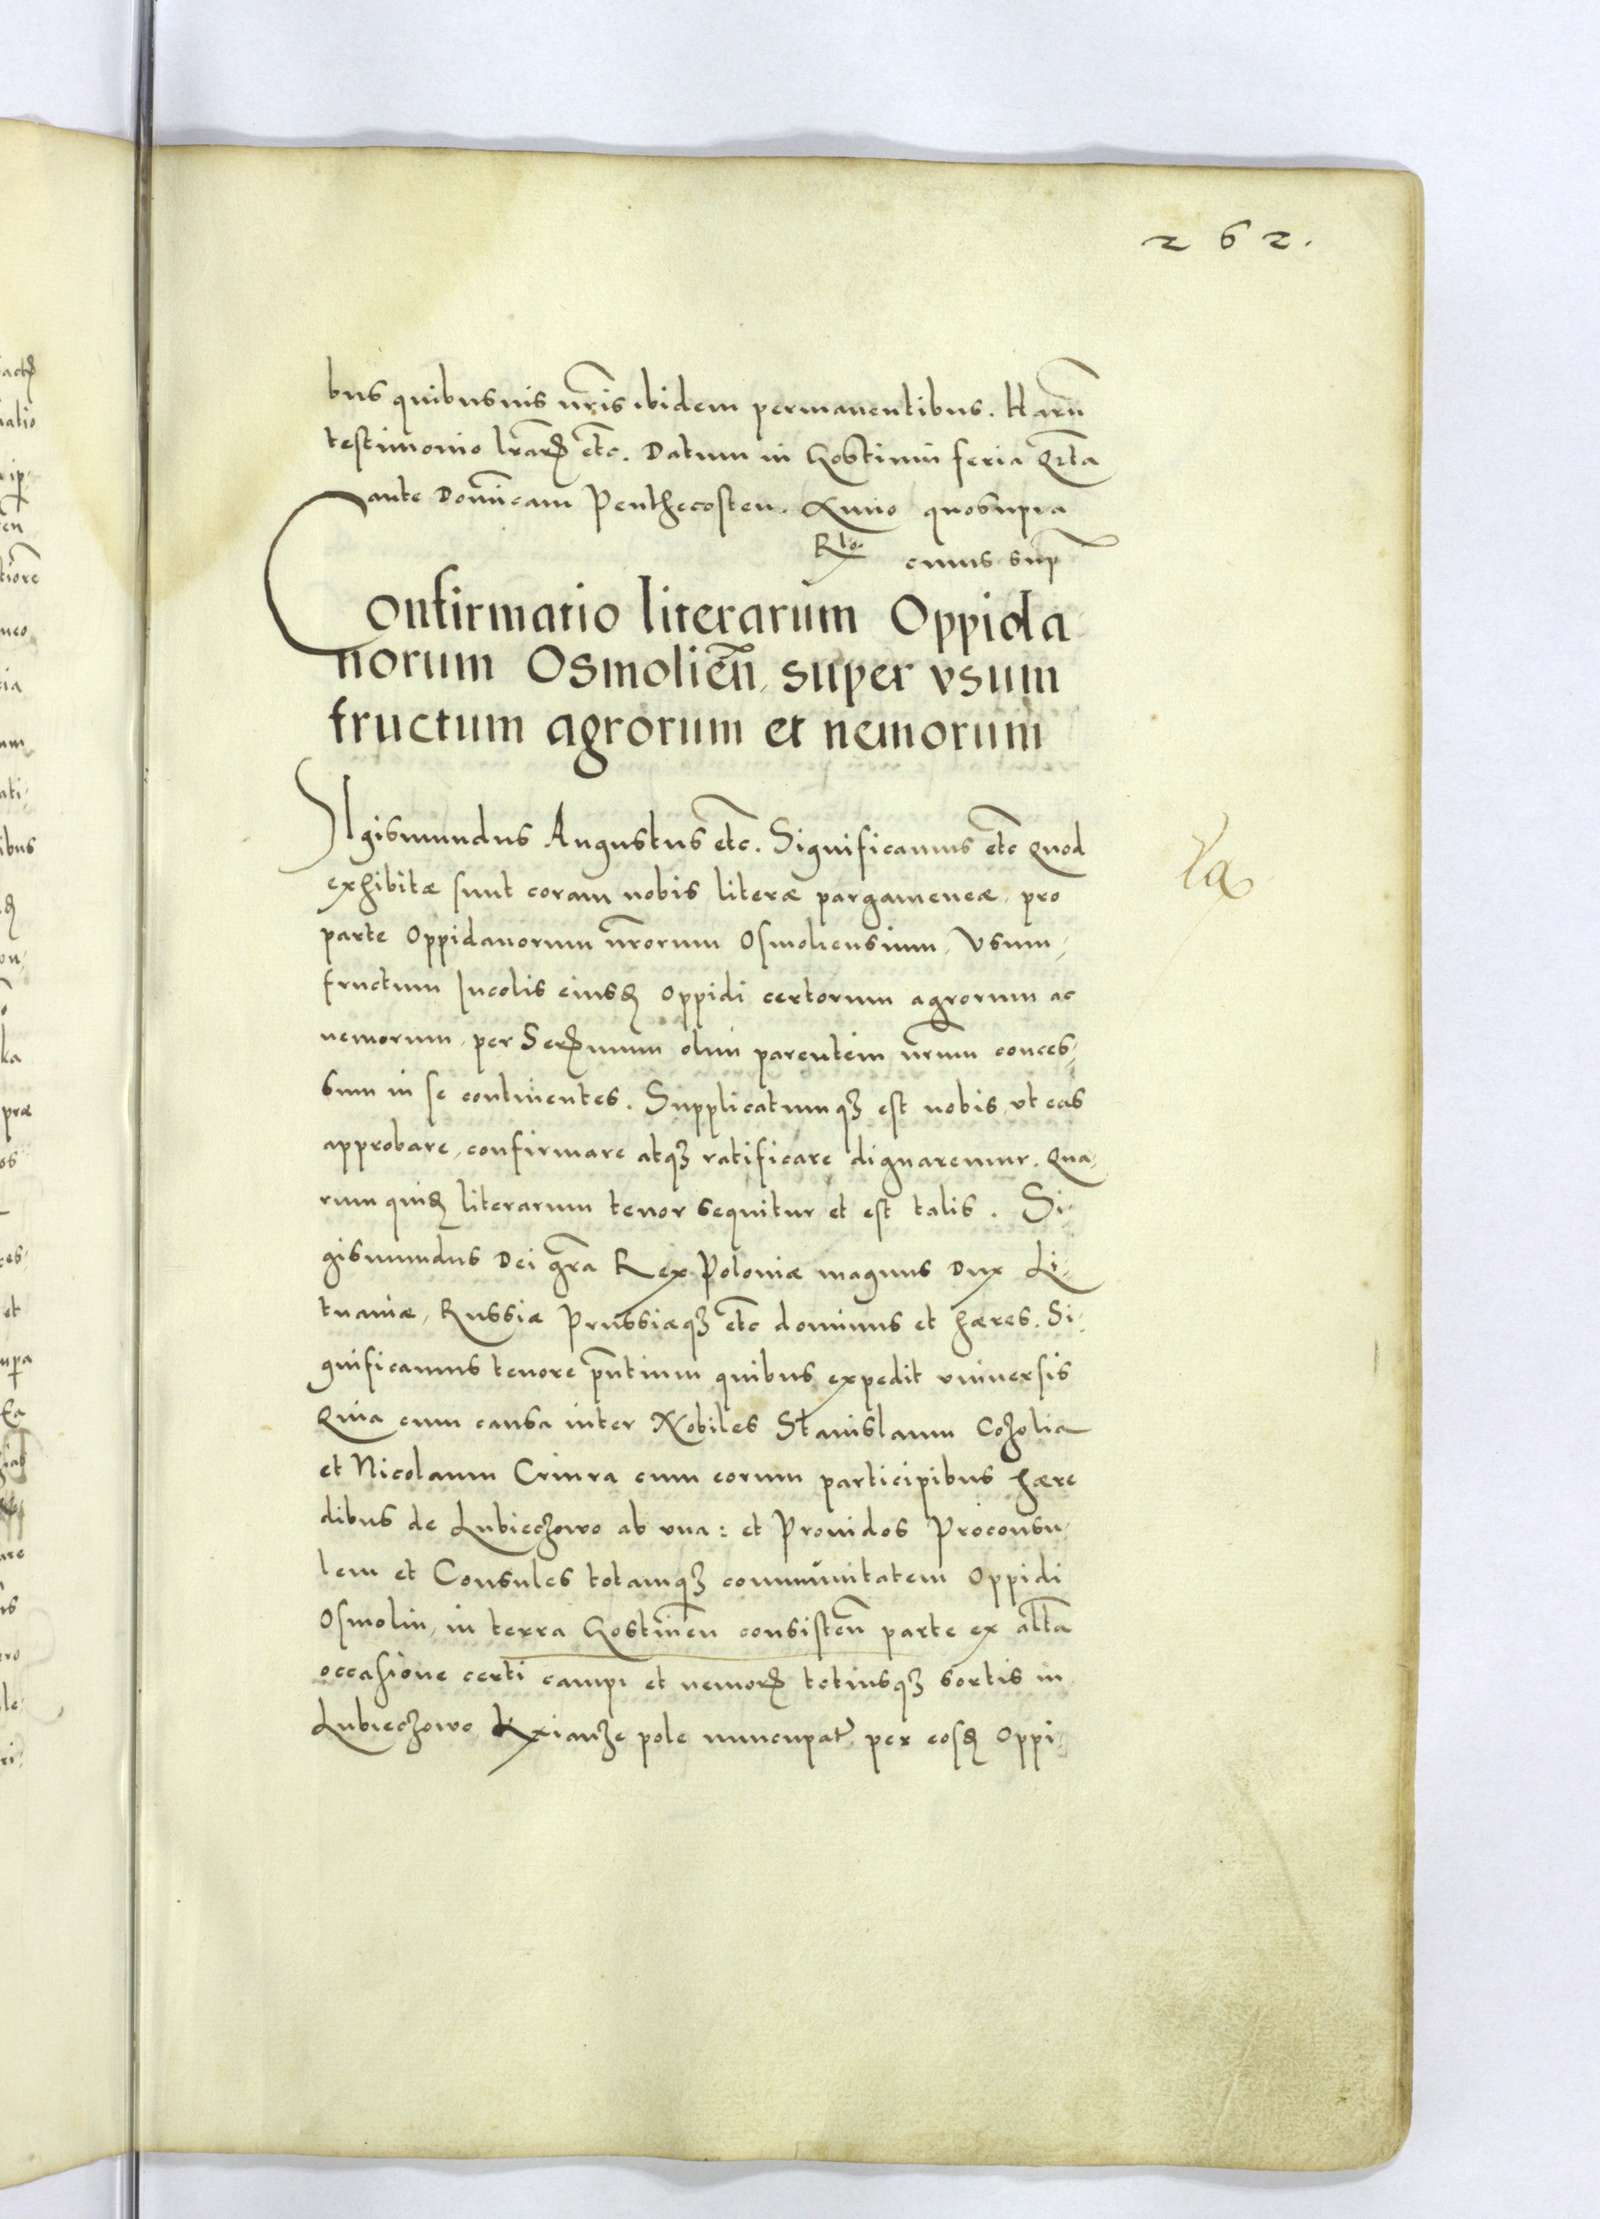 262.
bus quibusuis nr̃is ibidem permanentibus. Harũ
testimonio lr̃aꝝ etc̃. Datum in Gostinin feria Qr̃ta
ante Domĩcam Penthecosten. Anno quosupra
Rlo. eiuus sup
Confirmatio literarum Oppida
norum Osmolieñ, super vsum
fructum agrorum et nemorum
SIgismundus Augustus etc̃. Significamus etc̃ Quod
exhibitæ sunt coram nobis literæ pargameneæ, pro
parte Oppidanorum nr̃orum Osmoliensium, Vsum,
fructum Incolis eiusꝗ Oppidi certorum agrorum ac
nemorum, per Serꝗmum olim parentem nr̃um conces,
sum in se continentes. Supplicatumqꝫ est nobis, vt eas
approbare, confirmare atqꝫ ratificare dignaremur. Qua,
rum quiꝗ literarum tenor sequitur et est talis. Si,
gismundus Dei gr̃a Rex Poloniæ magnus Dux Li,
tuaniæ, Russiæ Prussiæqꝫ etc̃ dominus et hæres. Si,
gnificamus tenore pñtium quibus expedit vniuersis
Quia cum causa inter Nobiles Stanislaum Cozolia
et Nicolaum Criura cum eorum participibus hære
dibus de Lubieczowo ab vna: et Prouidos Proconsu,
lem et Consules totamqꝫ communitatem Oppidi
Osmolin, in terra Gostineñ consisteñ parte ex alt̃a
occasione certi campi et nemoꝝ totiusqꝫ sortis in
Lubieczowo Kxianze pole nuncupat̃ per eosꝗ Oppi,